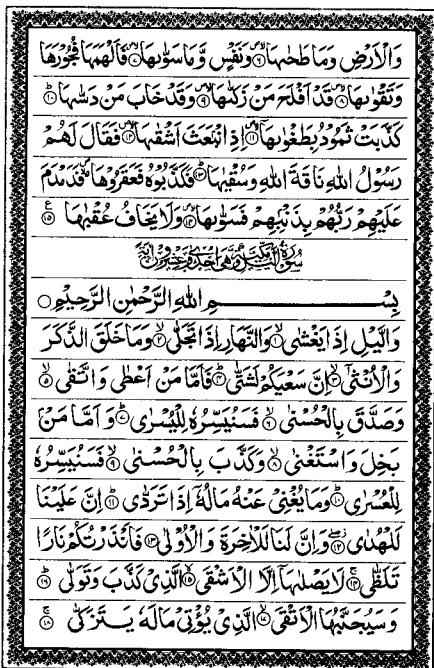 وَالْاَرْضِ وَمَا طَحٰىهَا ۙ۶ وَنَفْسٍ وَّمَا سَوّٰىهَا ۙ۷ فَاَلْهَمَهَا فُجُوْرَهَا
وَتَقْوٰىهَا ۙ۸ قَدْ اَفْلَحَ مَنْ زَكّٰىهَا ۙ۹ وَقَدْ خَابَ مَنْ دَسّٰىهَا ۱۰
كَذَّبَتْ ثَمُوْدُ بِطَغْوٰىهَا ۙ۱۱ اِذِ انْۢبَعَثَ اَشْقٰىهَا ۙ۱۲ فَقَالَ لَهُمْ
رَسُوْلُ اللّٰهِ نَاقَةَ اللّٰهِ وَسُقْيٰهَا ۱۳ فَكَذَّبُوْهُ فَعَقَرُوْهَا فَدَمْدَمَ
عَلَيْهِمْ رَبُّهُمْ بِذَنْۢبِهِمْ فَسَوّٰىهَا ۙ۱۴ وَلَا يَخَافُ عُقْبٰهَا ۱۵
سُوْرَةُ الَّيْلِ مَكِّيَّةٌ وَّهِيَ اِحْدٰى وَعِشْرُوْنَ اٰيَةً
بِسْمِ اللّٰهِ الرَّحْمٰنِ الرَّحِيْمِ
وَالَّيْلِ اِذَا يَغْشٰى ۙ۱ وَالنَّهَارِ اِذَا تَجَلّٰى ۙ۲ وَمَا خَلَقَ الذَّكَرَ
وَالْاُنْثٰٓى ۙ۳ اِنَّ سَعْيَكُمْ لَشَتّٰى ۴ فَاَمَّا مَنْ اَعْطٰى وَاتَّقٰى ۙ۵
وَصَدَّقَ بِالْحُسْنٰى ۙ۶ فَسَنُيَسِّرُهٗ لِلْيُسْرٰى ۷ وَاَمَّا مَنْۢ
بَخِلَ وَاسْتَغْنٰى ۙ۸ وَكَذَّبَ بِالْحُسْنٰى ۙ۹ فَسَنُيَسِّرُهٗ
لِلْعُسْرٰى ۱۰ وَمَا يُغْنِيْ عَنْهُ مَالُهٗٓ اِذَا تَرَدّٰى ۱۱ اِنَّ عَلَيْنَا
لَلْهُدٰى ۱۲ وَاِنَّ لَنَا لَلْاٰخِرَةَ وَالْاُوْلٰى ۱۳ فَاَنْذَرْتُكُمْ نَارًا
تَلَظّٰى ۱۴ لَا يَصْلٰىهَآ اِلَّا الْاَشْقَى ۙ۱۵ الَّذِيْ كَذَّبَ وَتَوَلّٰى ۱۶
وَسَيُجَنَّبُهَا الْاَتْقَى ۙ۱۷ الَّذِيْ يُؤْتِيْ مَالَهٗ يَتَزَكّٰى ۱۸